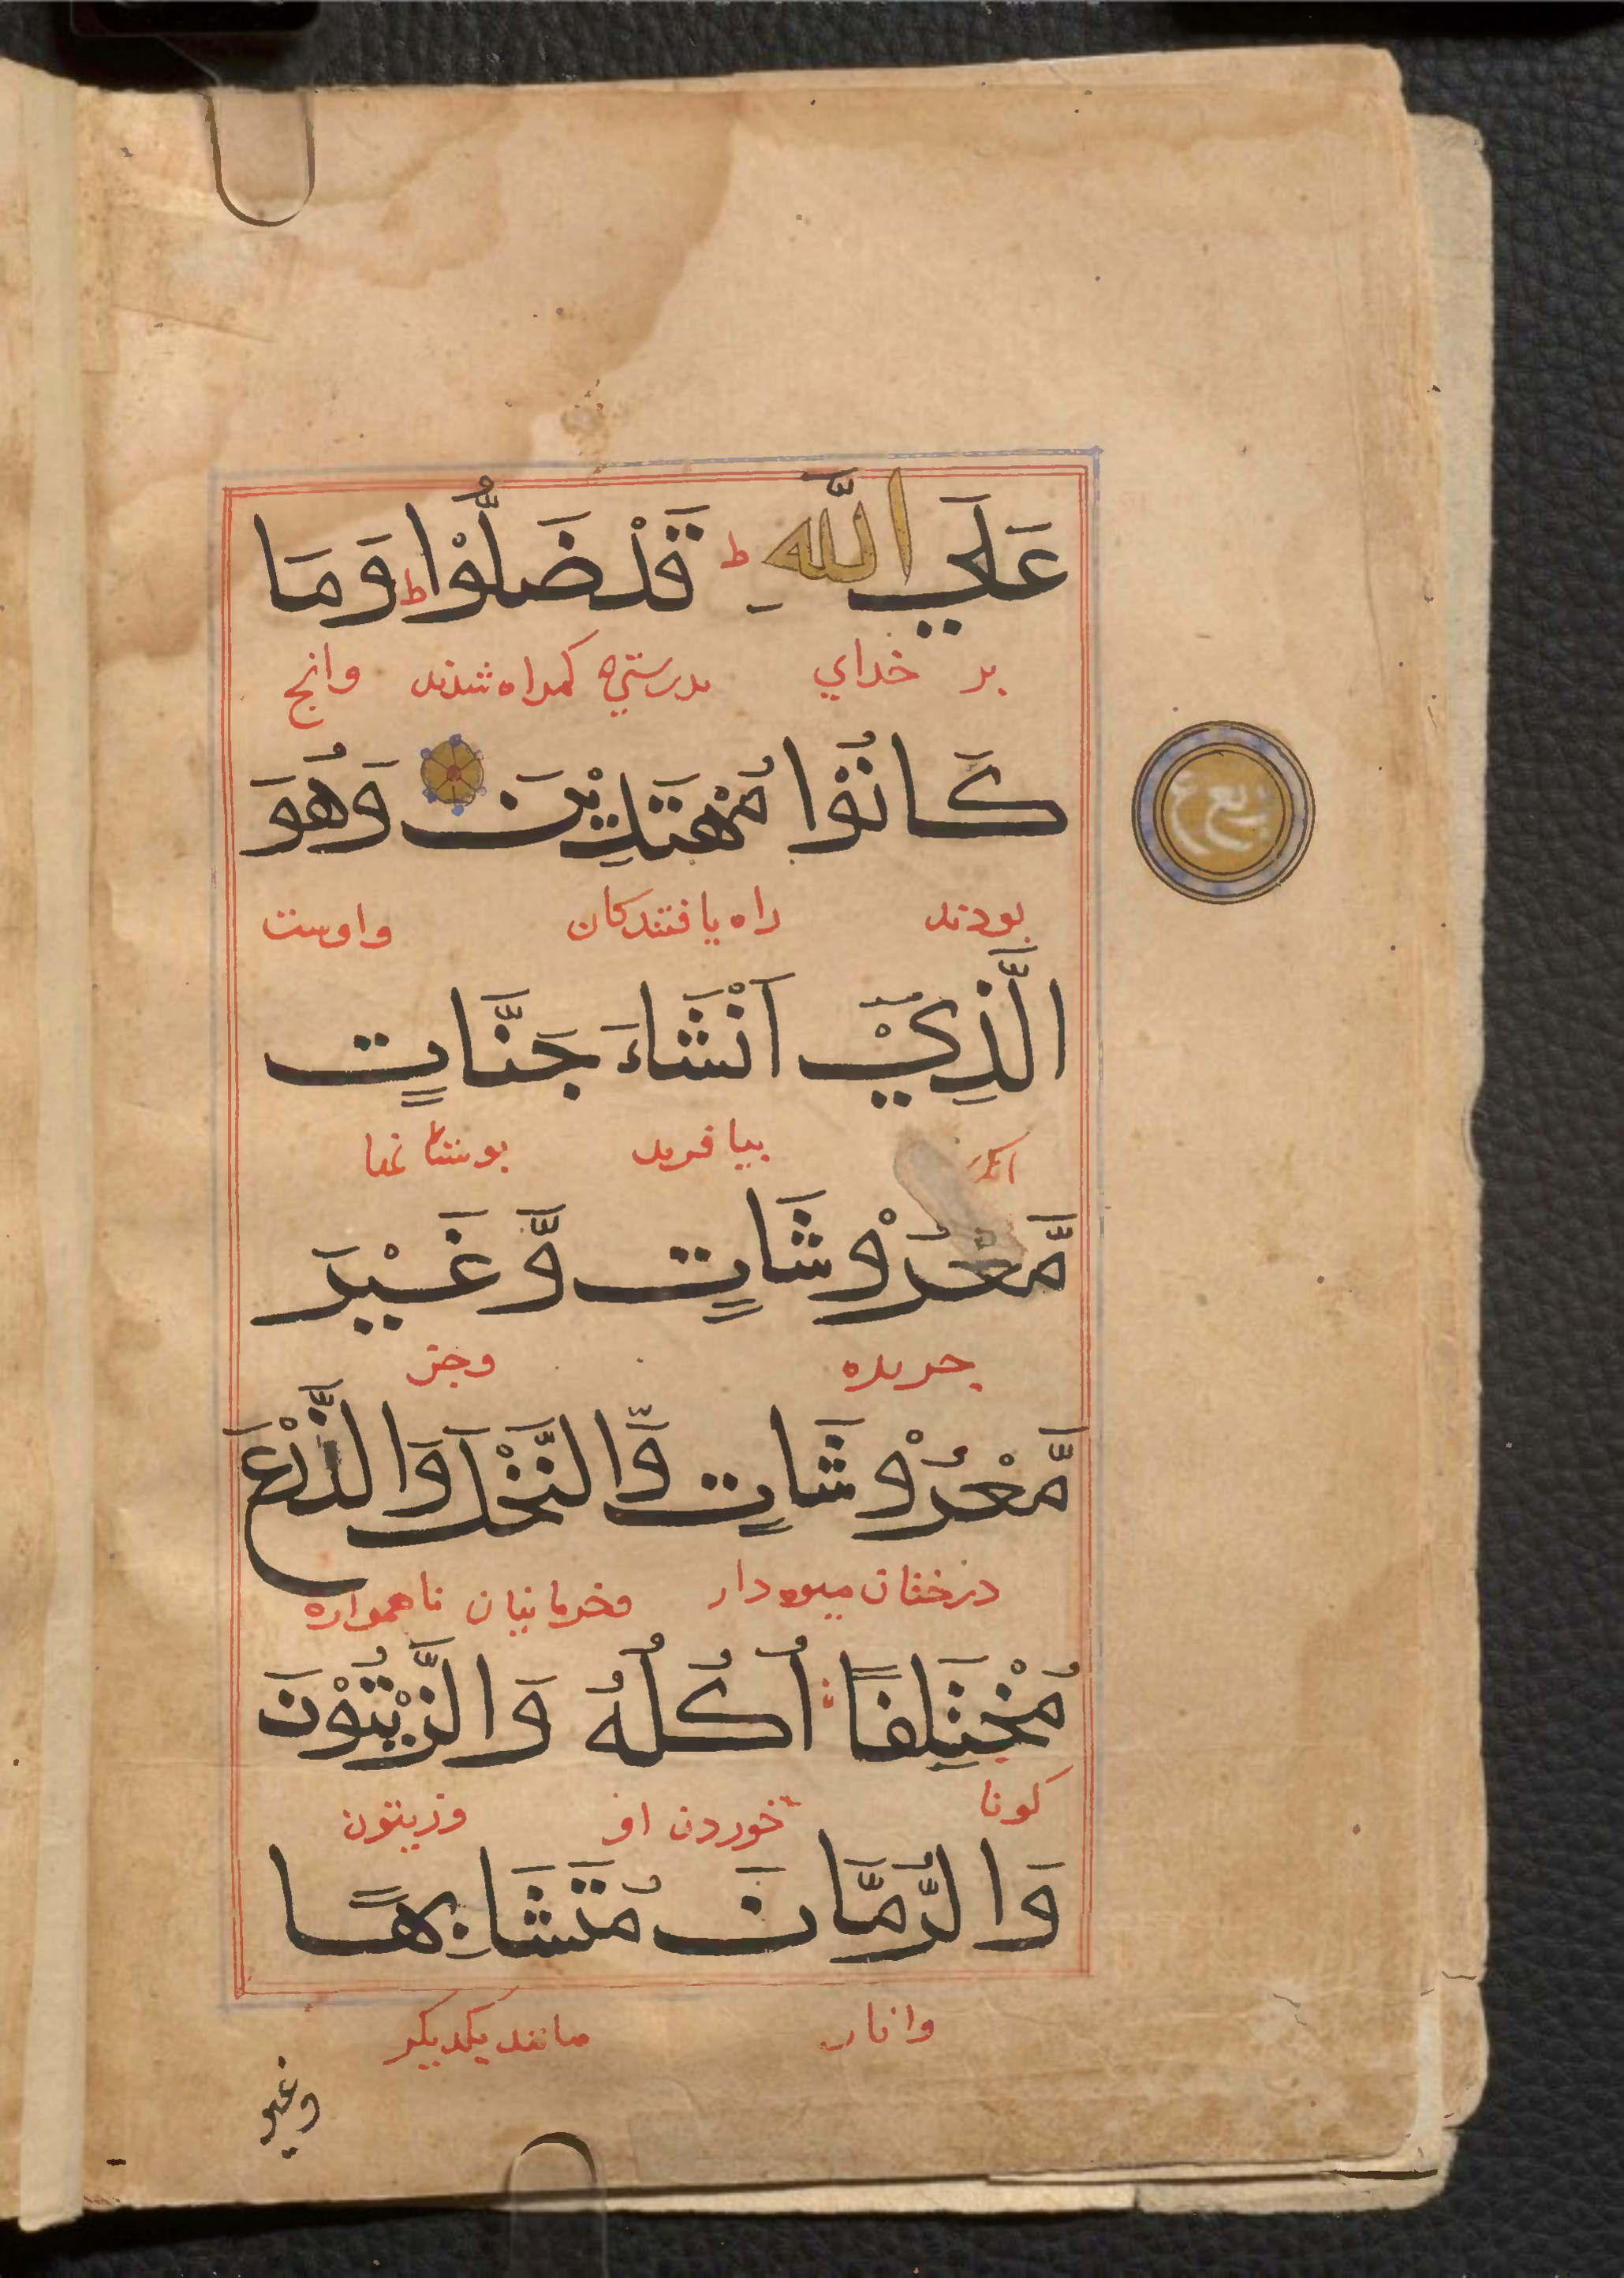 عَلَي اللَّهِ ط قَدْ ضَلُّوْا ط وَمَا
بر خداي بدرستي كمراه شدند وانج
كَانُوْا مُهْتَدِيْنَ وَهُوَ
ربع
بودند راه يافتندكان واوست
الَّذِيْ اَنْشَاءَ جَنَّاتٍ
بيافريد بوستانها
مَّعْرُوْشَاتٍ وَّغَيْرَ
وجز
مَّعْرُوْشَاتٍ وَّالنَّخْلَ وَالزَّرْعَ
درختان ميوه دار وخرمانيان ناهمواره
مُخْتَلِفًا اُكُلُهُ وَالزَّيْتُوْنَ
كونا خوردن او وزيتون
وَالرُّمَّانَ مُتَشَابِهًا
وانار مانند يكديكر
وغير